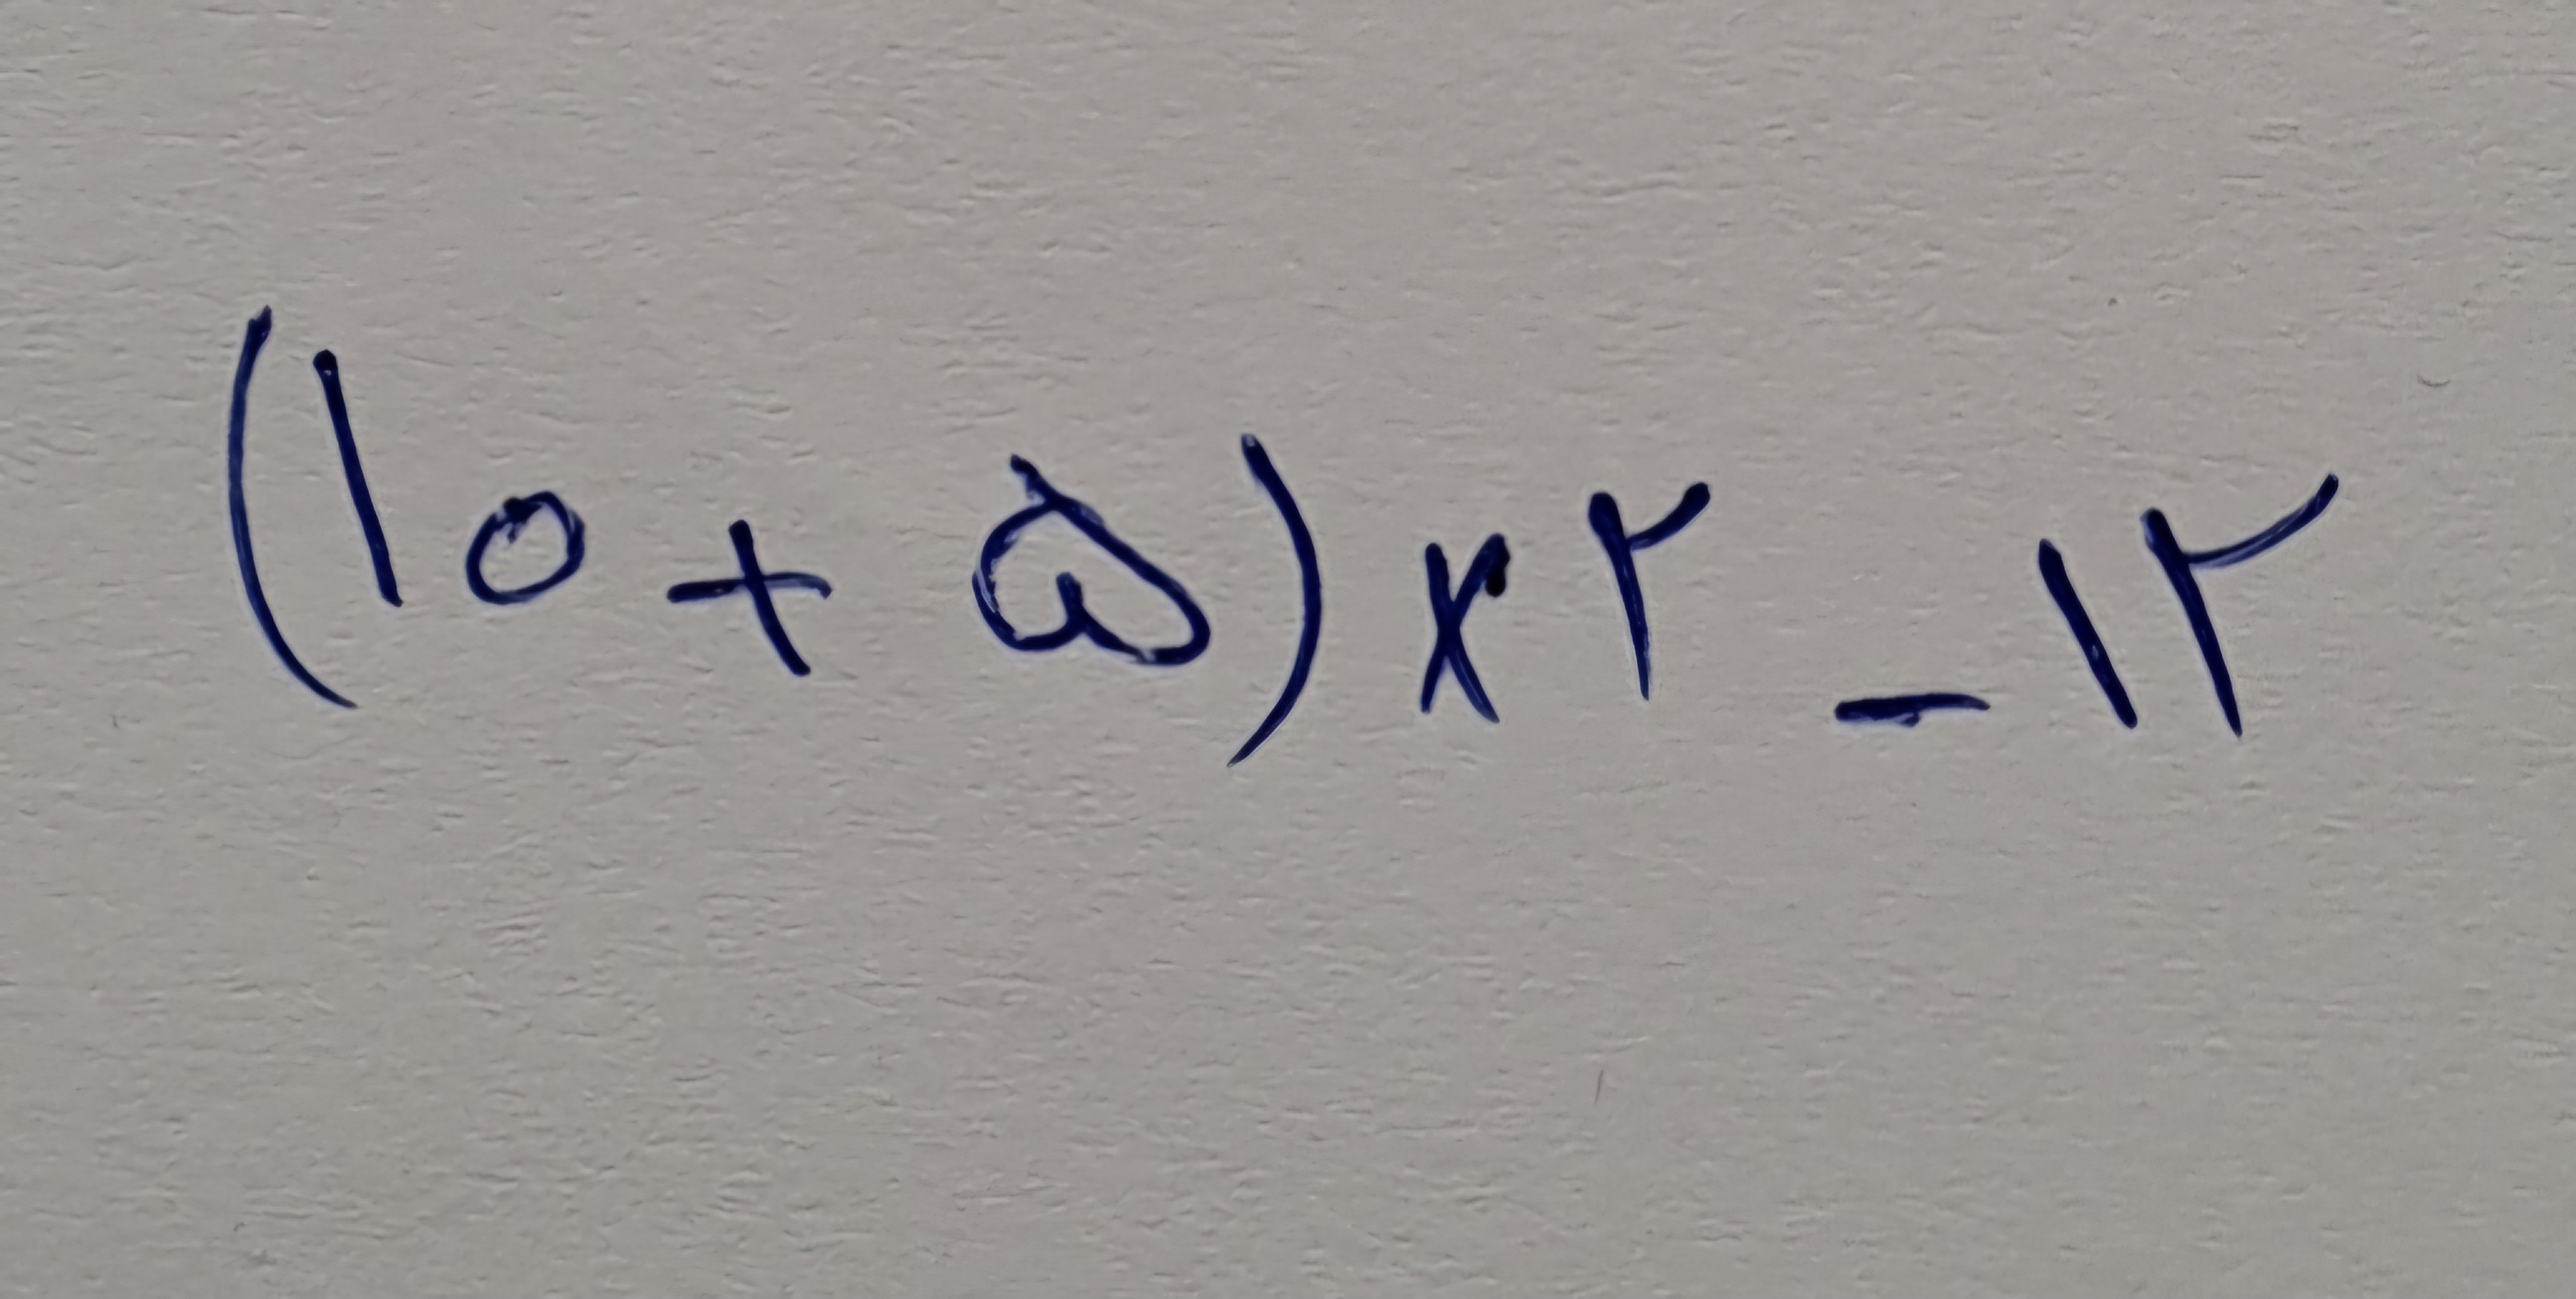 (۱۰ + ۵) × ۲ - ۱۲